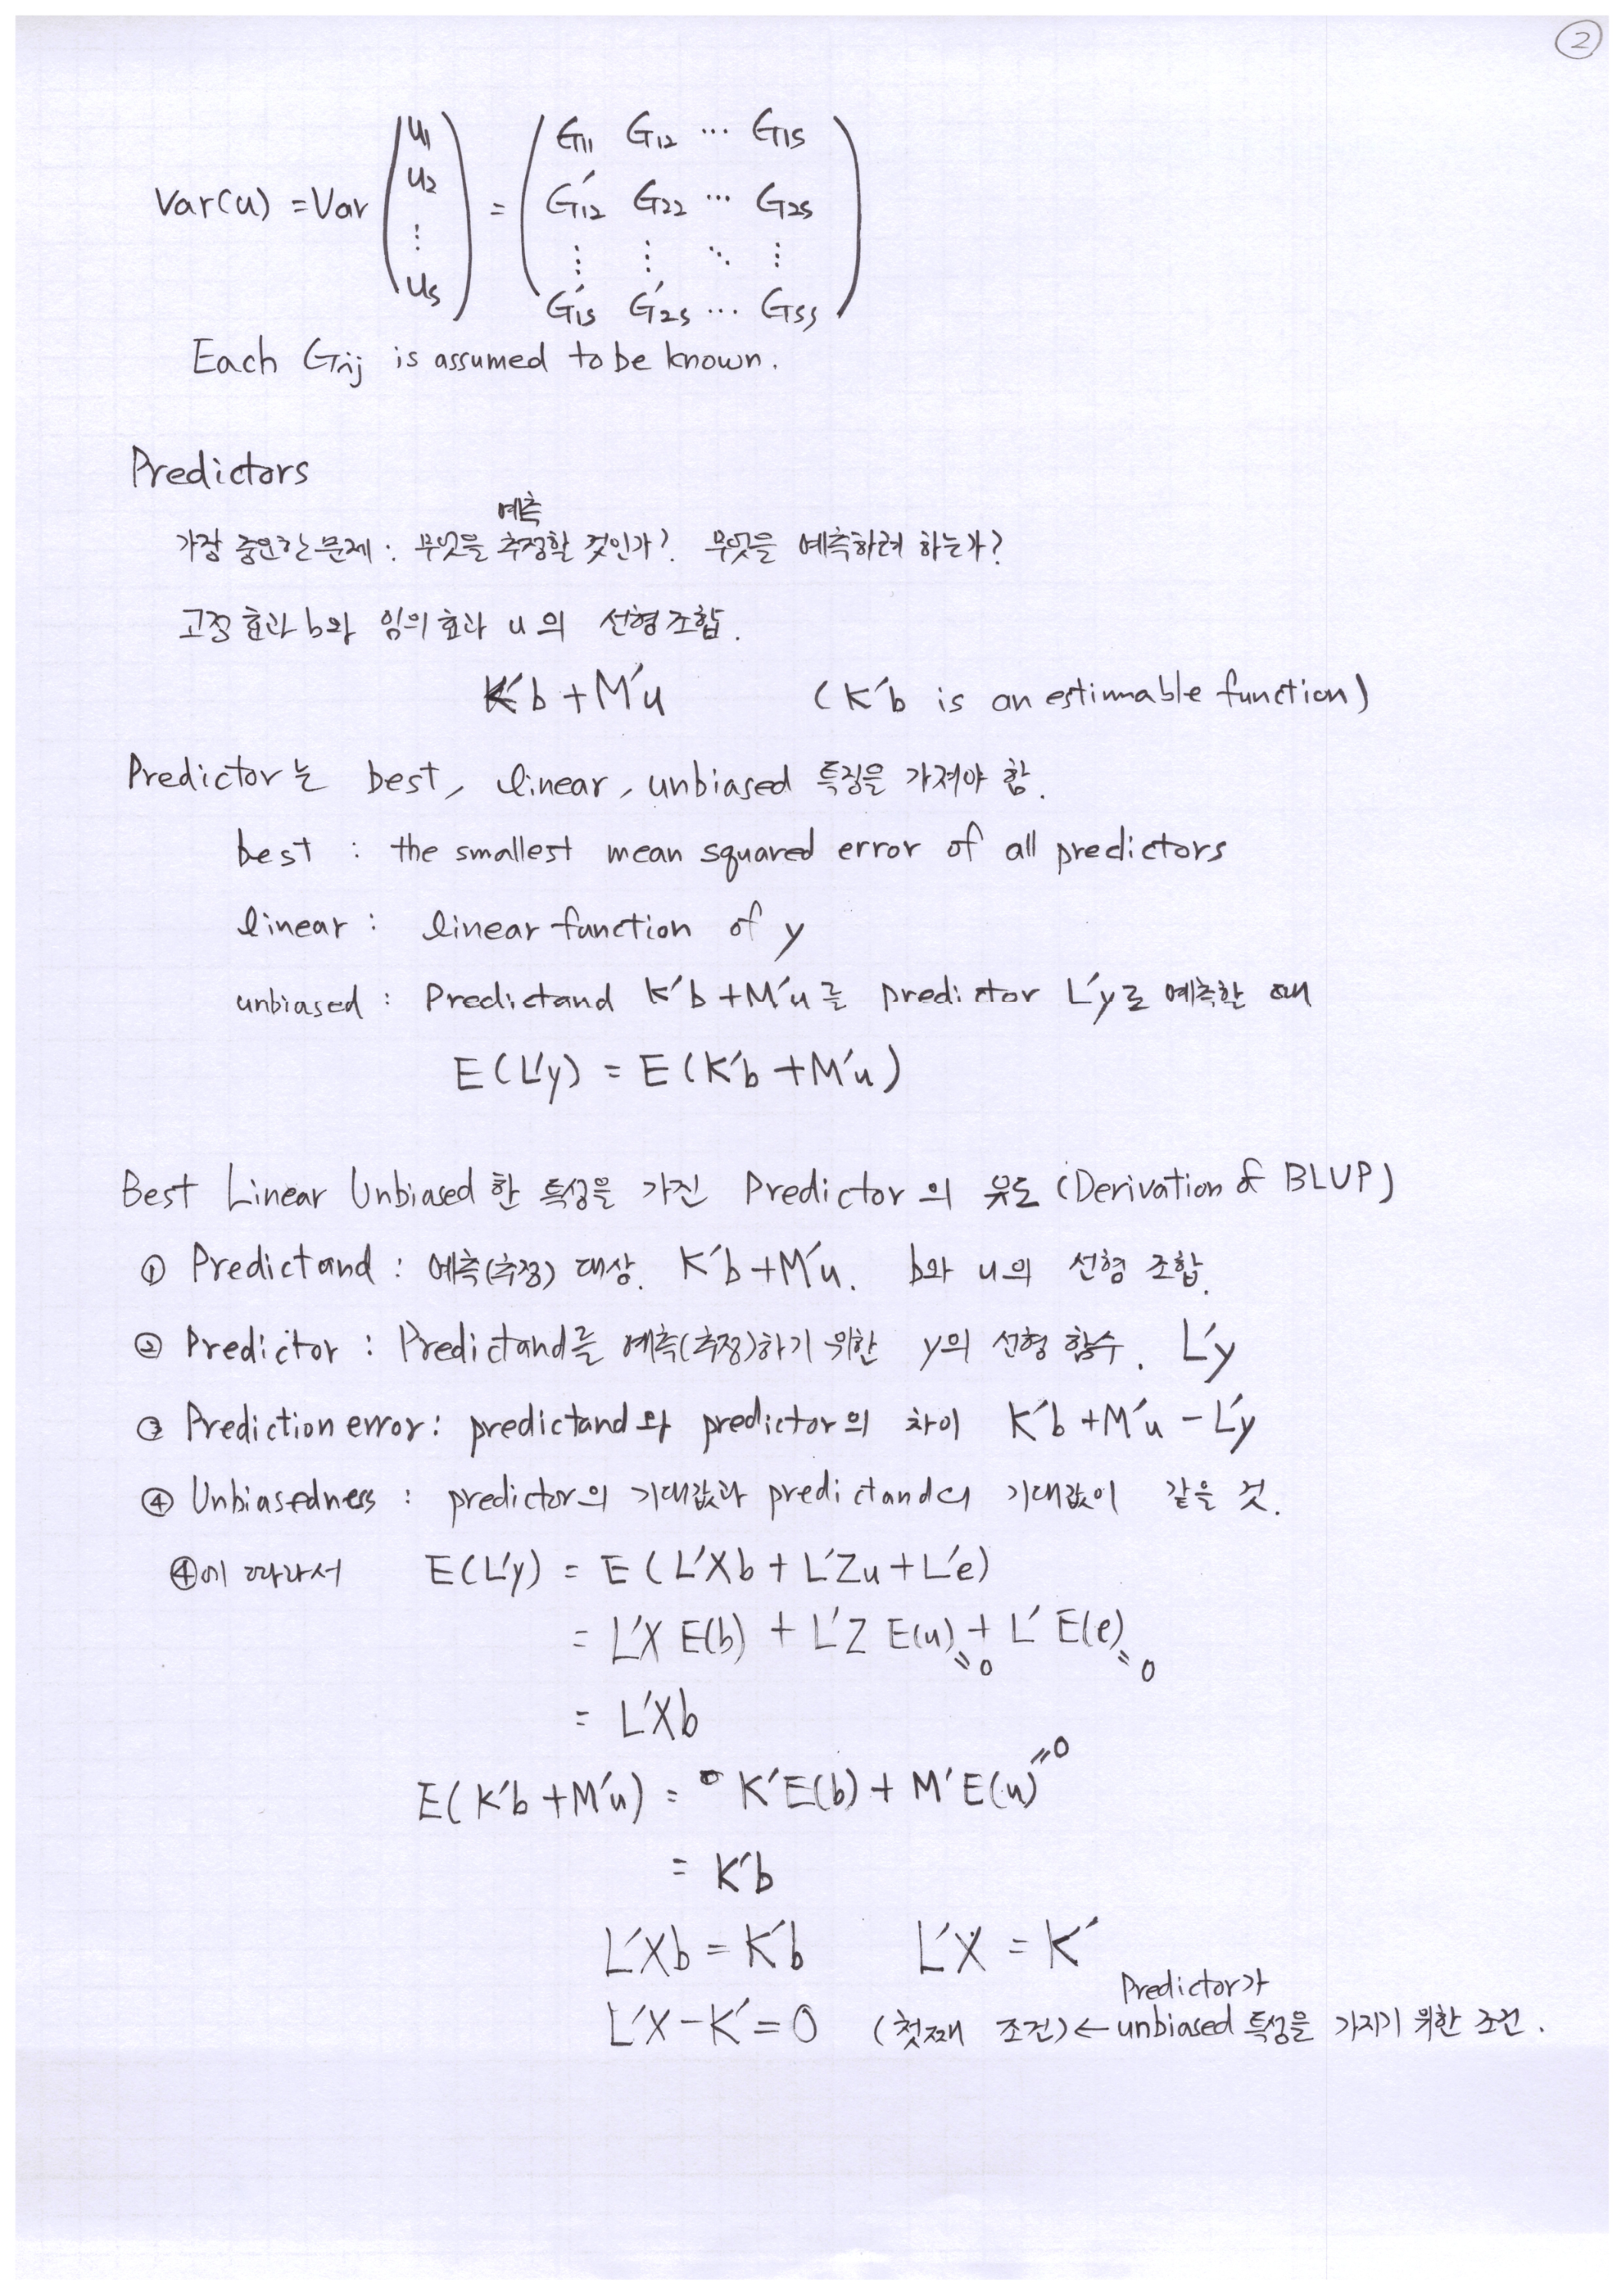 ②
Var(u) = Var (u₁ u₂ ⋮ u_s) = (G₁₁ G₁₂ ⋯ G₁s
G₁₂′ G₂₂ ⋯ G₂s
⋮ ⋮ ⋱ ⋮
G₁s′ G₂s′ ⋯ Gss)
Each Gij is assumed to be known.
Predictors
예측
가장 중요한 문제 : 무엇을 추정할 것인가? 무엇을 예측하려 하는가?
고정 효과 b와 임의 효과 u의 선형 조합.
K′b + M′u (K′b is an estimable function)
Predictor는 best, linear, unbiased 특징을 가져야 함.
best : the smallest mean squared error of all predictors
linear : linear function of y
unbiased : Predictand K′b + M′u를 predictor L′y로 예측할 때
E(L′y) = E(K′b + M′u)
Best Linear Unbiased 한 특성을 가진 Predictor의 유도 (Derivation of BLUP)
① Predictand : 예측(추정) 대상. K′b + M′u. b와 u의 선형 조합.
② Predictor : Predictand를 예측(추정)하기 위한 y의 선형 함수. L′y
③ Prediction error : predictand와 predictor의 차이 K′b + M′u − L′y
④ Unbiasedness : predictor의 기대값과 predictand의 기대값이 같을 것.
④에 따라서 E(L′y) = E(L′Xb + L′Zu + L′e)
= L′X E(b) + L′Z E(u) + L′ E(e)
=0 =0
= L′Xb
=0
E(K′b + M′u) = K′E(b) + M′E(u)
= K′b
L′Xb = K′b L′X = K′
Predictor가
L′X − K′ = 0 (첫째 조건) ← unbiased 특성을 가지기 위한 조건.